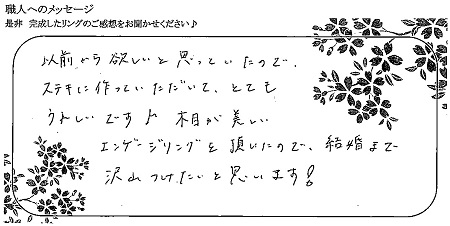 職人へのメッセージ
是非 完成したリングのご感想をお聞かせください♪
以前から欲しいと思っていたので、
ステキに作っていただいて、とても
うれしいです♪ 木目が美しい
エンゲージリングを頂いたので、結婚まで
沢山つけたいと思います!